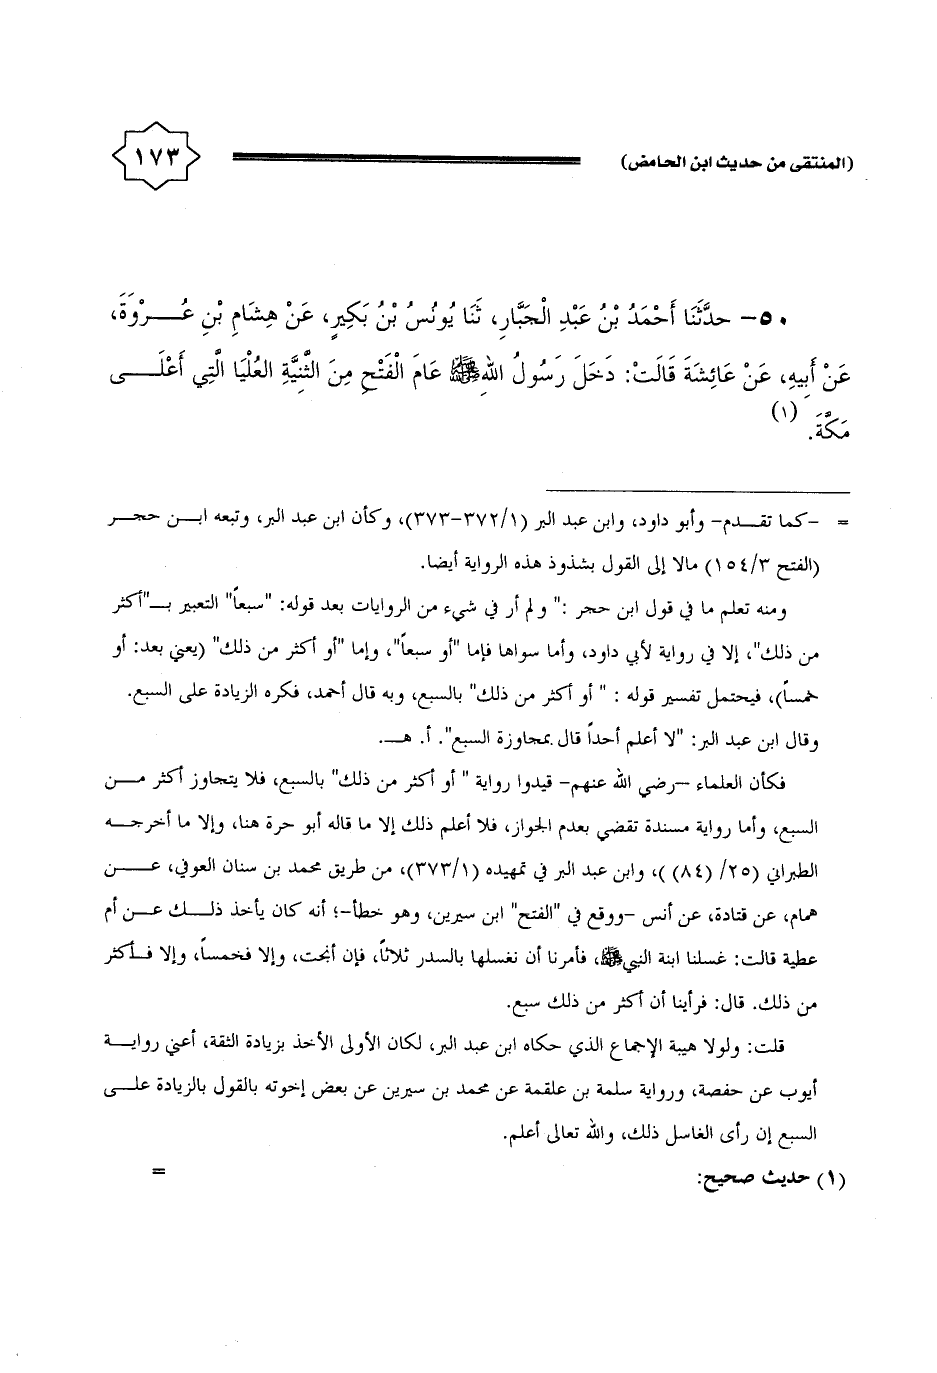 (المنتقى من حديث ابن الحامض)
١٧٣
٥٠- حدَّثَنَا أَحْمَدُ بْنُ عَبْدِ الْجَبَّارِ، ثَنَا يُونُسُ بْنُ بَكِيرٍ، عَنْ هِشَامِ بْنِ عُـــرْوَةَ،
عَنْ أَبِيهِ، عَنْ عَائِشَةَ قَالَتْ: دَخَلَ رَسُولُ اللهِ ﷺ عَامَ الْفَتْحِ مِنَ الثَّنِيَّةِ العُلْيَا الَّتِي أَعْلَـــى
مَكَّةَ. (١)
= -كما تقـــدم- وأبو داود، وابن عبد البر (٣٧٢/١-٣٧٣)، وكأن ابن عبد البر، وتبعه ابـــن حجـــر
(الفتح ١٥٤/٣) مالا إلى القول بشذوذ هذه الرواية أيضا.
ومنه تعلم ما في قول ابن حجر :" ولم أر في شيء من الروايات بعد قوله: "سبعاً" التعبير بـــ"أكثر
من ذلك"، إلا في رواية لأبي داود، وأما سواها فإما "أو سبعاً"، وإما "أو أكثر من ذلك" (يعني بعد: أو
خمساً)، فيحتمل تفسير قوله : " أو أكثر من ذلك" بالسبع، وبه قال أحمد، فكره الزيادة على السبع.
وقال ابن عبد البر: "لا أعلم أحداً قال بمجاوزة السبع". أ. هـــ.
فكأن العلماء –رضي الله عنهم- قيدوا رواية " أو أكثر من ذلك" بالسبع، فلا يتجاوز أكثر مـــن
السبع، وأما رواية مسندة تقضي بعدم الجواز، فلا أعلم ذلك إلا ما قاله أبو حرة هنا، وإلا ما أخرجـــه
الطبراني (٢٥/ (٨٤) )، وابن عبد البر في تمهيده (٣٧٣/١)، من طريق محمد بن سنان العوفي، عـــن
همام، عن قتادة، عن أنس –ووقع في "الفتح" ابن سيرين، وهو خطأ-؛ أنه كان يأخذ ذلـــك عـــن أم
عطية قالت: غسلنا ابنة النبي ﷺ، فأمرنا أن نغسلها بالسدر ثلاثاً، فإن أنجت، وإلا فخمساً، وإلا فـــأكثر
من ذلك. قال: فرأينا أن أكثر من ذلك سبع.
قلت: ولولا هيبة الإجماع الذي حكاه ابن عبد البر، لكان الأولى الأخذ بزيادة الثقة، أعني روايـــة
أيوب عن حفصة، ورواية سلمة بن علقمة عن محمد بن سيرين عن بعض إخوته بالقول بالزيادة علـــى
السبع إن رأى الغاسل ذلك، والله تعالى أعلم.
(١) حديث صحيح: =